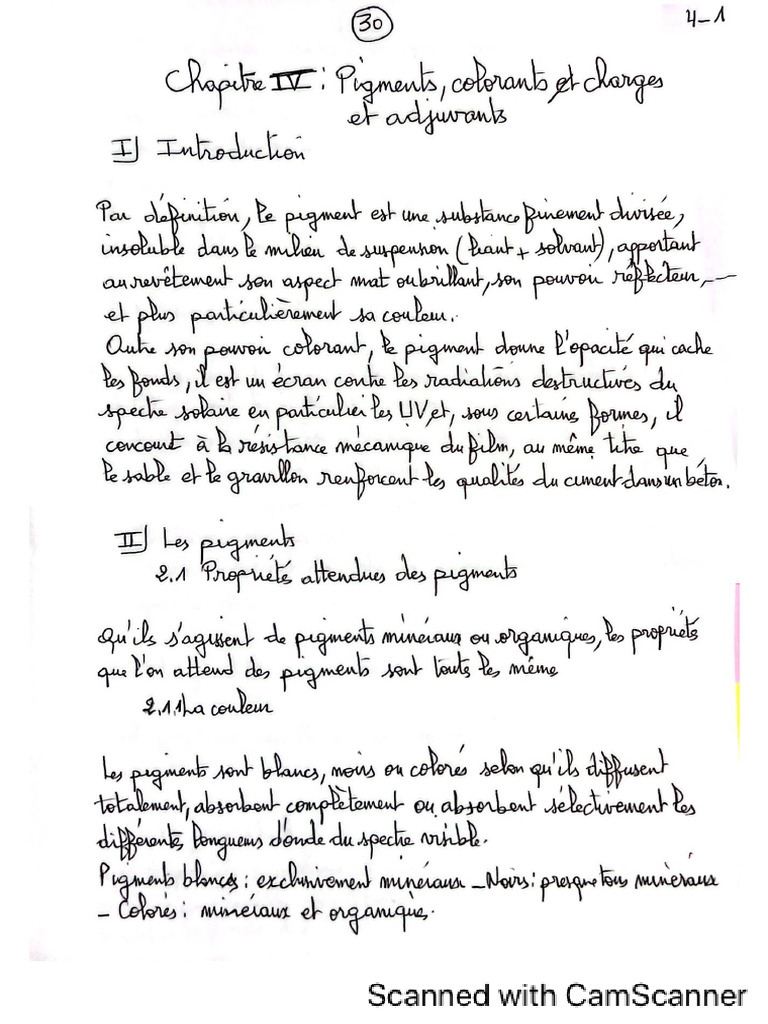 30
4-1
Chapitre IV : Pigments, colorants et charges
et adjuvants
I) Introduction
Par définition, le pigment est une substance finement divisée,
insoluble dans le milieu de suspension (liant + solvant), apportant
au revêtement son aspect mat ou brillant, son pouvoir réflecteur,
et plus particulièrement sa couleur.
Outre son pouvoir colorant, le pigment donne l'opacité qui cache
les fonds, il est un écran contre les radiations destructives du
spectre solaire en particulier les UV et, sous certaine formes, il
concourt à la résistance mécanique du film, au même titre que
le sable et le gravillon renforcent les qualités du ciment dans un béton.
II) Les pigments
2.1 Propriétés attendues des pigments
Qu'ils s'agissent de pigments minéraux ou organiques, les propriétés
que l'on attend des pigments sont touts les même
2.1.1 La couleur
Les pigments sont blancs, noirs ou colorés selon qu'ils diffusent
totalement, absorbent complètement ou absorbent sélectivement les
différentes longueurs d'onde du spectre visible.
Pigments blancs : exclusivement minéraux - Noirs : presque tous minéraux
- Colorés : minéraux et organiques.
Scanned with CamScanner